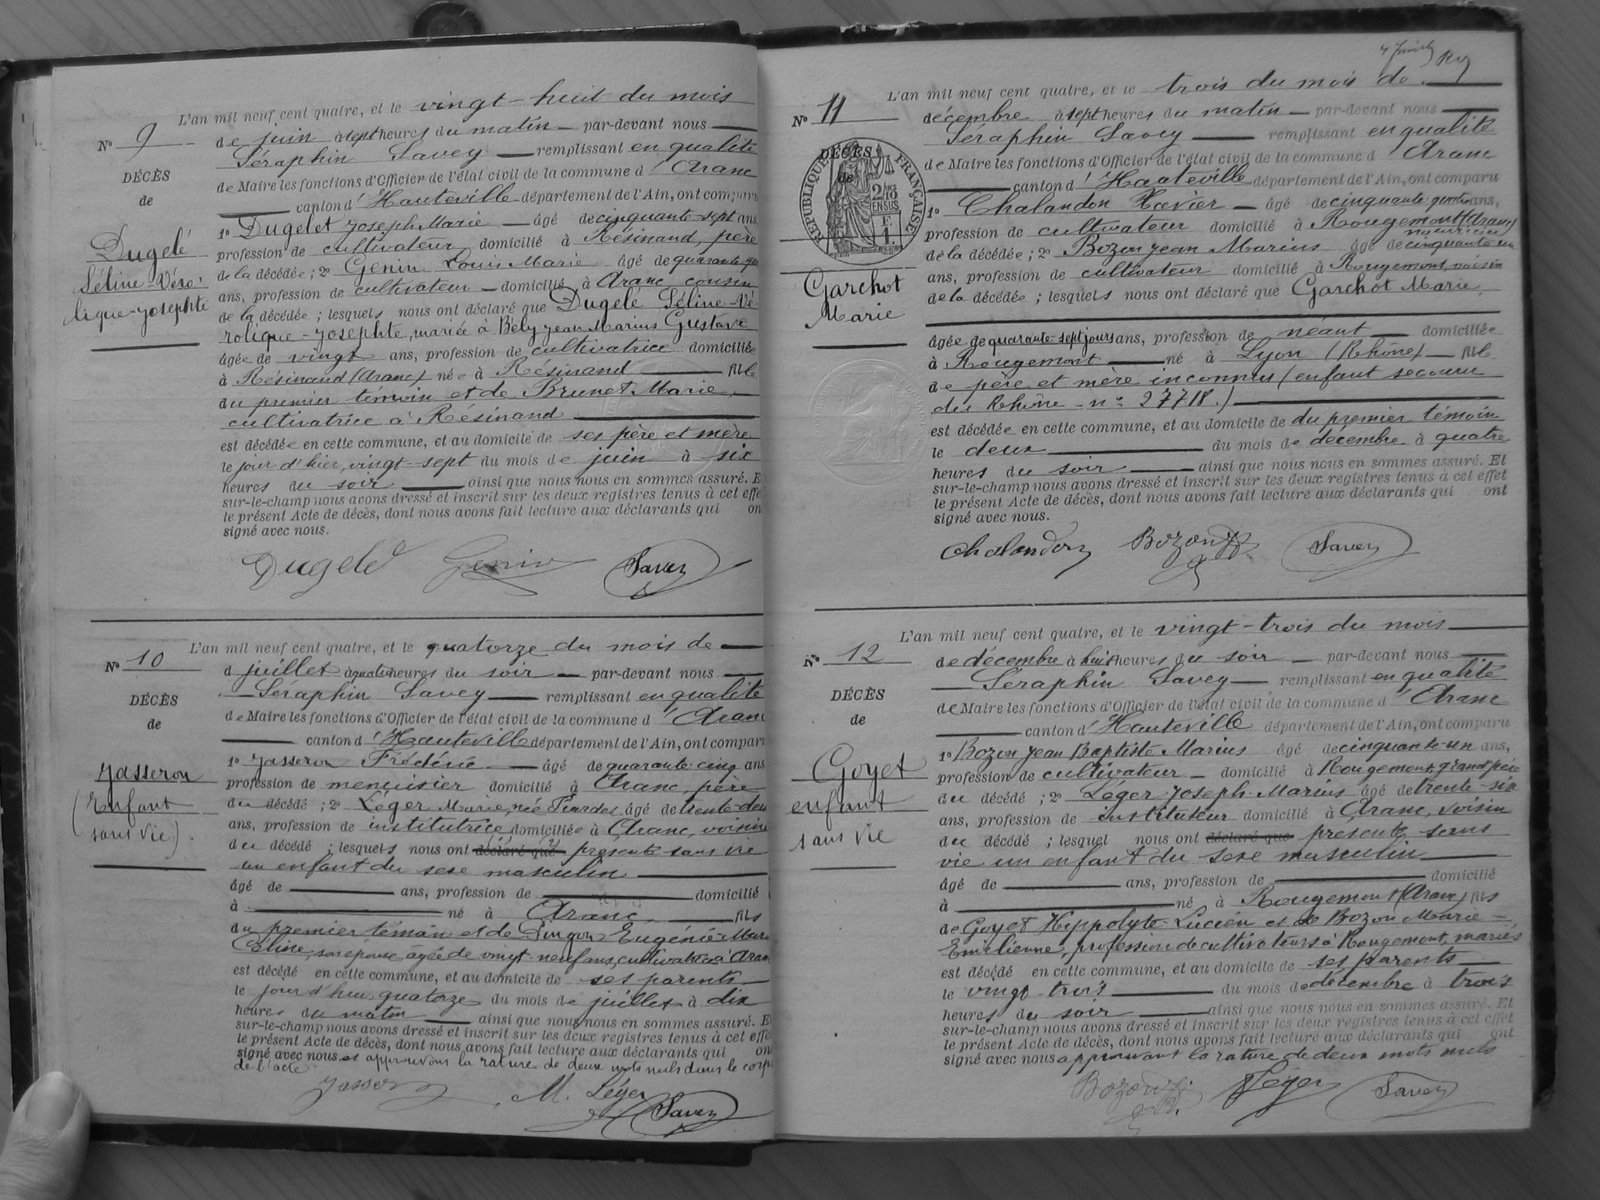 L'an mil neuf cent quatre, et le vingt-huit du mois
N° 9
de juin à sept heures du matin par-devant nous
Séraphin Savey remplissant en qualité
DÉCÈS
de Maire les fonctions d'Officier de l'état civil de la commune d'Aranc
de
canton d'Hauteville département de l'Ain, ont comparu
Dugelé
Séline-Véro-
lique-Josephte
1° Dugelet Joseph Marie âgé de cinquante-sept ans
profession de cultivateur domicilié à Résinand, père
de la décédée ; 2° Genin Louis Marie âgé de quarante
ans, profession de cultivateur domicilié à Aranc, cousin
de la décédée ; lesquels nous ont déclaré que Dugelé Séline-Vé-
rolique-Josephte, mariée à Bély Jean Marius Gustave
âgée de vingt ans, profession de cultivatrice domiciliée
à Résinand (Aranc) née à Résinand fille
du premier témoin et de Brunet Marie
cultivatrice à Résinand
est décédée en cette commune, et au domicile de ses père et mère
le jour d'hier, vingt-sept du mois de juin à six
heures du soir ainsi que nous nous en sommes assuré. E
sur-le-champ nous avons dressé et inscrit sur les deux registres tenus à cet effe
le présent Acte de décès, dont nous avons fait lecture aux déclarants qui on
signé avec nous.
Dugelé Genin Savey
L'an mil neuf cent quatre, et le quatorze du mois de
N° 10
d juillet à quatre heures du soir par-devant nous
Séraphin Savey remplissant en qualité
DÉCÈS
de Maire les fonctions d'Officier de l'état civil de la commune d'Aranc
de
canton d'Hauteville département de l'Ain, ont compar
Jasseron
(enfant
sans vie).
1° Jasseron Frédéric âgé de quarante cinq ans
profession de menuisier domicilié à Aranc, père
du décédé ; 2° Léger Marie, née âgé de trente-deux
ans, profession de institutrice domiciliée à Aranc, voisine
du décédé ; lesquels nous ont déclaré que présenté sans vie
un enfant du sexe masculin
âgé de ans, profession de domicilié
à né à Aranc fils
du premier témoin et de Eugénie-Marie
Céline, son épouse âgée de vingt-neuf ans, cultivatrice à Aranc
est décédé en cette commune, et au domicile de ses parents
le jour d'hui quatorze du mois de juillet à dix
heures du matin ainsi que nous nous en sommes assuré. E
sur-le-champ nous avons dressé et inscrit sur les deux registres tenus à cet effe
le présent Acte de décès, dont nous avons fait lecture aux déclarants qui on
signé avec nous et approuvons la rature de deux mots nuls dans le corps
de l'acte
Jasseron M. Léger Savey
4 Juin
L'an mil neuf cent quatre, et le trois du mois de
N° 11
décembre à sept heures du matin par-devant nous
Séraphin Savey remplissant en qualité
DÉCÈS
de
RÉPUBLIQUE FRANÇAISE
de Maire les fonctions d'Officier de l'état civil de la commune d'Aranc
canton d'Hauteville département de l'Ain, ont comparu
Garchot
Marie
1° Chalandon Xavier âgé de cinquante-quatre ans,
profession de cultivateur domicilié à Rougemont (Aranc)
nourricier
de la décédée ; 2° Bozon Jean Marius âgé de cinquante un
ans, profession de cultivateur domicilié à Rougemont, voisin
de la décédée ; lesquels nous ont déclaré que Garchot Marie
âgée de quarante-sept jours ans, profession de néant domiciliée
à Rougemont né à Lyon (Rhône) fille
de père et mère inconnus (enfant secouru
du Rhône n° 27718.)
est décédée en cette commune, et au domicile de du premier témoin
le deux du mois de décembre à quatre
heures du soir ainsi que nous nous en sommes assuré. Et
sur-le-champ nous avons dressé et inscrit sur les deux registres tenus à cet effet
le présent Acte de décès, dont nous avons fait lecture aux déclarants qui ont
signé avec nous.
Chalandon Bozon Savey
L'an mil neuf cent quatre, et le vingt-trois du mois
N° 12
de décembre à huit heures du soir par-devant nous
Séraphin Savey remplissant en qualité
DÉCÈS
de Maire les fonctions d'Officier de l'état civil de la commune d'Aranc
de
canton d'Hauteville département de l'Ain, ont comparu
Goyet
enfant
sans vie
1° Bozon Jean Baptiste Marius âgé de cinquante-un ans,
profession de cultivateur domicilié à Rougemont, grand-père
du décédé ; 2° Léger Joseph-Marius âgé de trente-six
ans, profession de instituteur domicilié à Aranc, voisin
du décédé ; lesquel nous ont déclaré que présenté sans
vie un enfant du sexe masculin
âgé de ans, profession de domicilié
à né à Rougemont (Aranc) fils
de Goyet Hippolyte Lucien et de Bozon Marie-
Emilienne, profession de cultivateurs à Rougemont, mariés
est décédé en cette commune, et au domicile de ses parents
le vingt-trois du mois de décembre à trois
heures du soir ainsi que nous nous en sommes assuré. Et
sur-le-champ nous avons dressé et inscrit sur les deux registres tenus à cet effet
le présent Acte de décès, dont nous avons fait lecture aux déclarants qui ont
signé avec nous approuvant la rature de deux mots nuls
Bozon Léger Savey